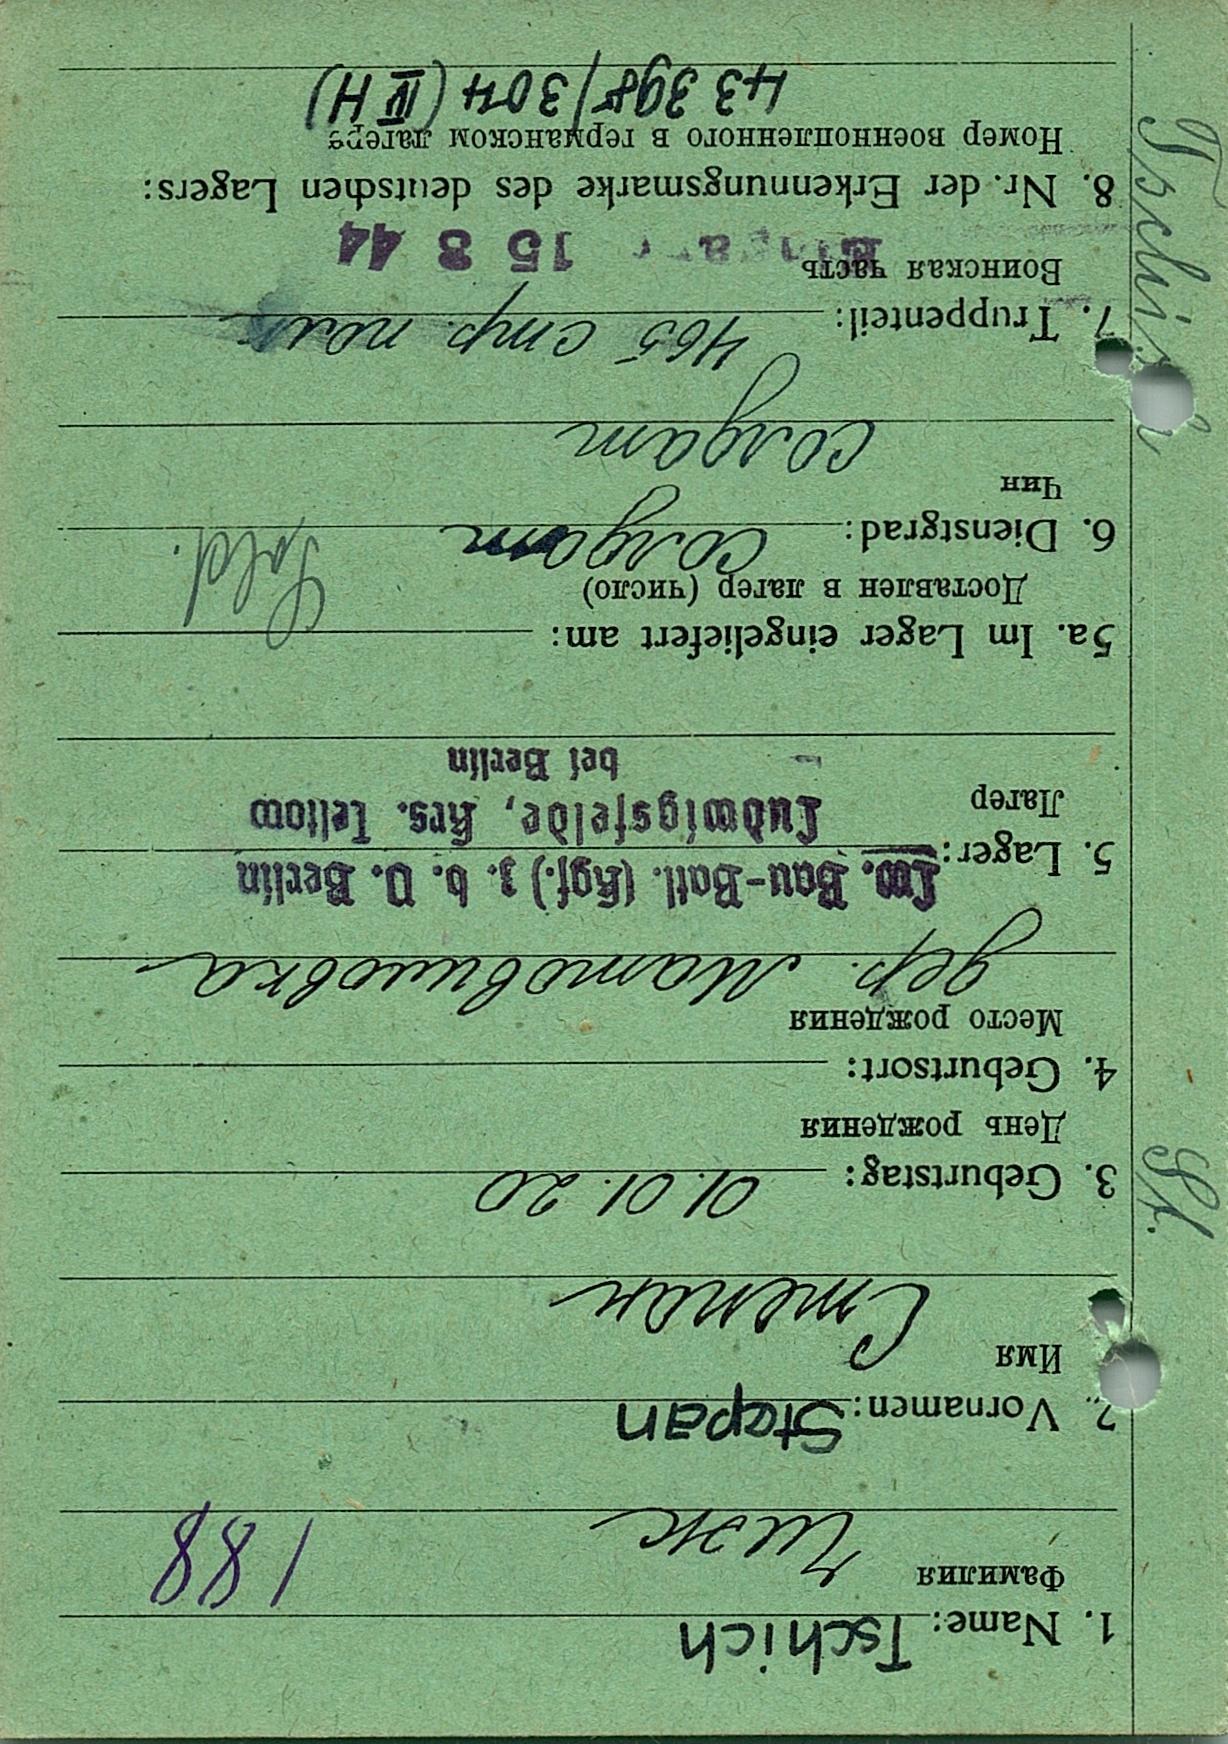 1. Name: Tschich
Фамилия
Чиж
188
2. Vornamen: Stepan
Имя
Степан
3. Geburtstag: 01.01.20
День рождения
4. Geburtsort:
Место рождения
дер. Матвишовка
5. Lager: Lw. Bau-Batl. (Kgf.) z. b. V. Berlin
Лагер
Ludwigsfelde, Krs. Teltow
bei Berlin
5a. Im Lager eingeliefert am:
Доставлен в лагер (число)
6. Dienstgrad: солдат Sold.
Чин
солдат
7. Truppenteil: 465 стр. полк
Воинская часть
15 8 44
8. Nr. der Erkennungsmarke des deutschen Lagers:
Номер военнопленного в германском лагере
43 398/304 (IV H)
Tschisch
St.